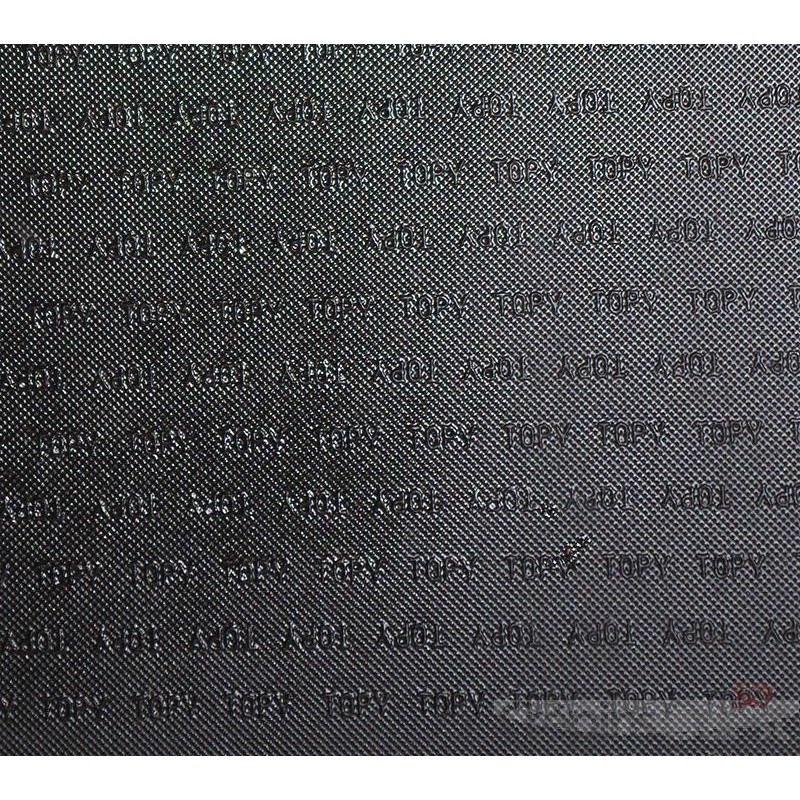 TOPY TOPY TOPY TOPY TOPY TOPY TOPY TOPY
TOPY TOPY TOPY TOPY TOPY TOPY TOPY TOPY TOPY
TOPY TOPY TOPY TOPY TOPY TOPY TOPY TOPY
TOPY TOPY TOPY TOPY TOPY TOPY TOPY TOPY
TOPY TOPY TOPY TOPY TOPY TOPY TOPY TOPY
TOPY TOPY TOPY TOPY TOPY TOPY TOPY TOPY
TOPY TOPY TOPY TOPY TOPY TOPY TOPY TOPY
TOPY TOPY TOPY TOPY TOPY TOPY TOPY TOPY
TOPY TOPY TOPY TOPY TOPY TOPY TOPY TOPY
TOPY TOPY TOPY TOPY TOPY TOPY TOPY TOPY
TOPY TOPY TOPY TOPY TOPY TOPY TOPY TOPY